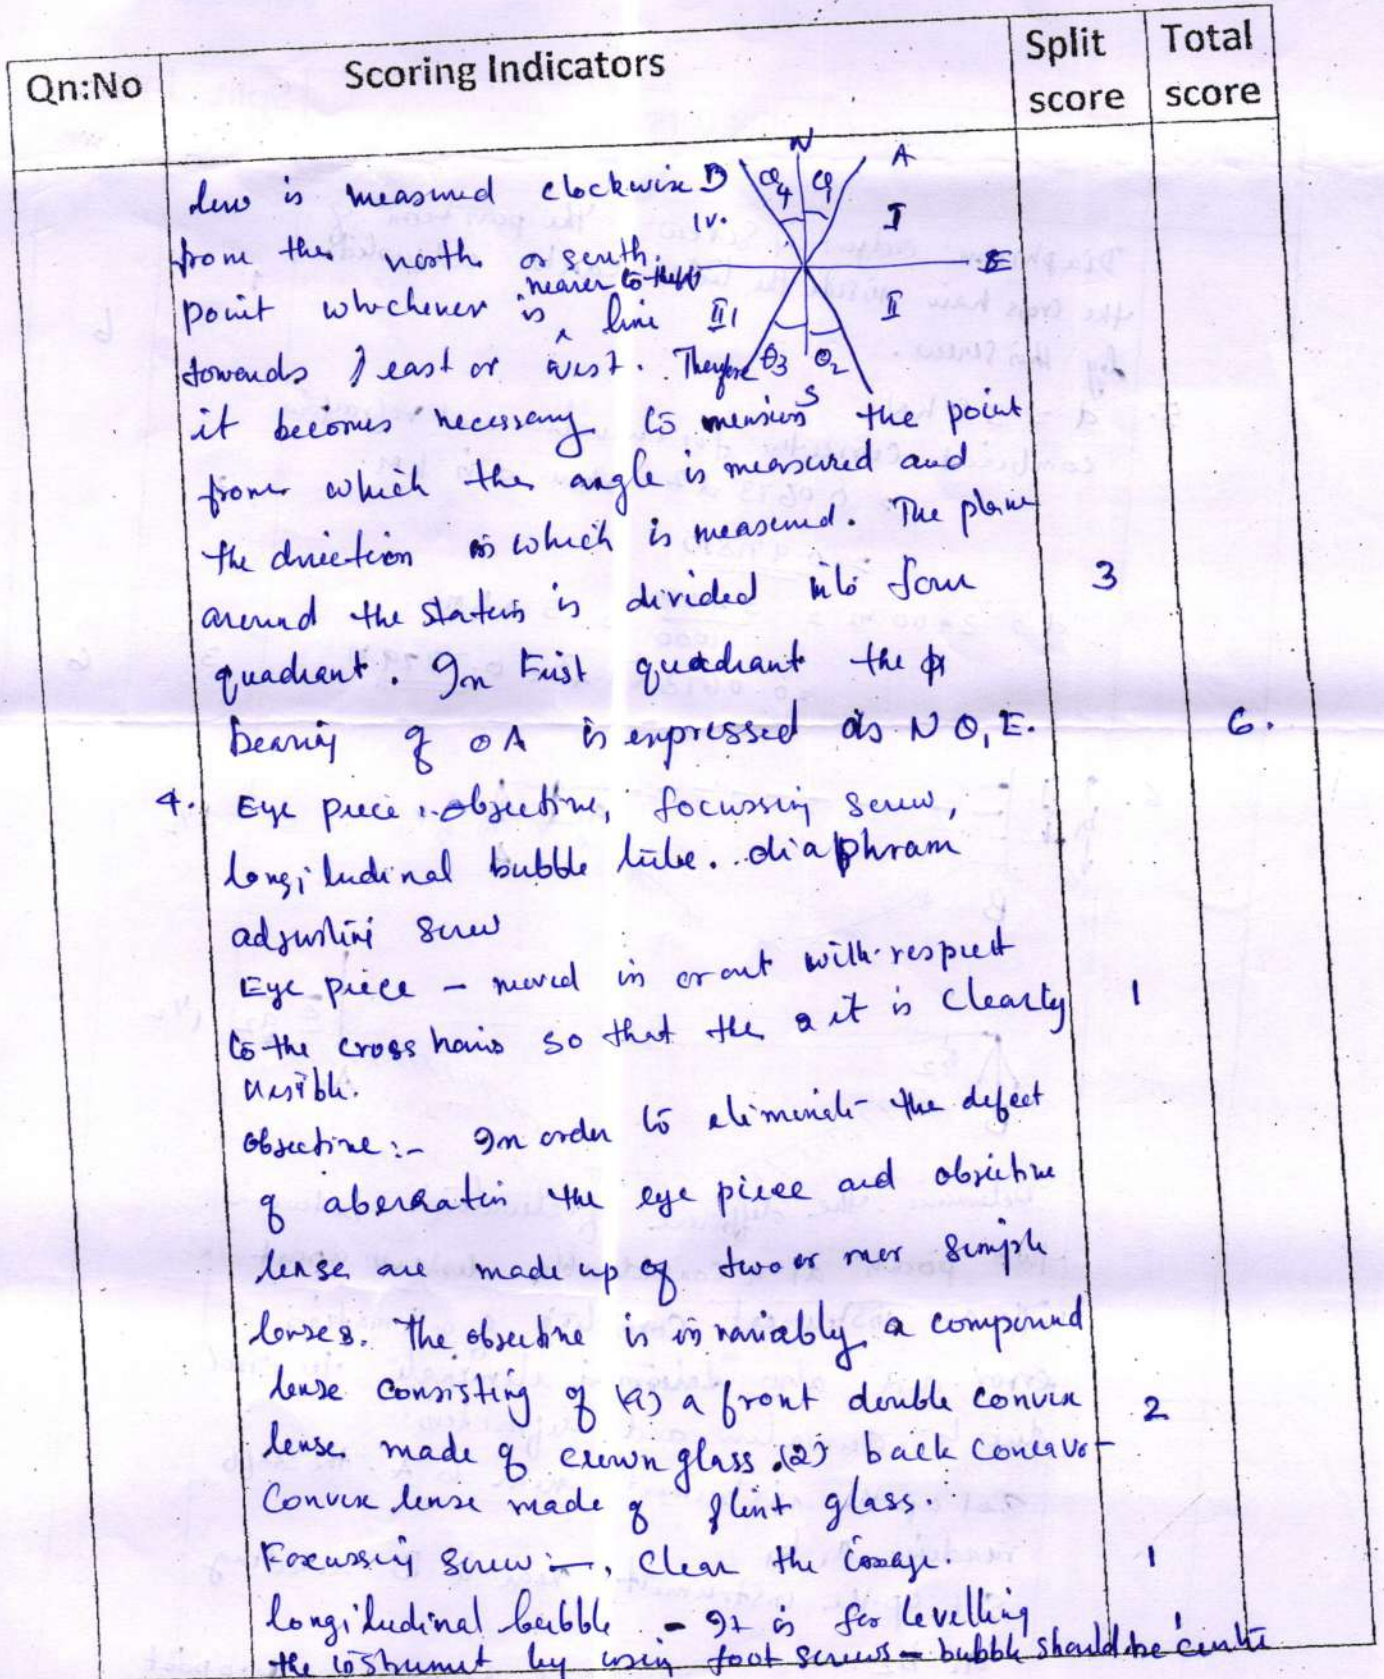 Qn:No Scoring Indicators Split score Total score
line is measured clockwise
from the north or south
point whichever is nearer to the line
towards east or west. Therefore
it becomes necessary to mension the point
from which the angle is measured and
the direction in which is measured. The plane
around the station is divided into four 3
quadrant. In First quadrant the
bearing of OA is expressed as N θ, E. 6.
N A B IV. I E III II θ4 θ1 θ3 θ2 S
4. Eye piece, objective, focussing screw,
longitudinal bubble tube. diaphram
adjusting screw
Eye piece - moved in or out with respect 1
to the cross hairs so that the it is clearly
visible.
objective:- In order to eliminate the defect
of aberration the eye piece and objective
lense are made up of two or mor simple
lenses. The objective is invariably a compound
lense consisting of (1) a front double convex 2
lense made of crown glass. (2) back concavo-
convex lense made of flint glass.
Focussing screw:-, Clear the image. 1
longitudinal bubble - It is for levelling 1
the instrument by using foot screws - bubble should be centre